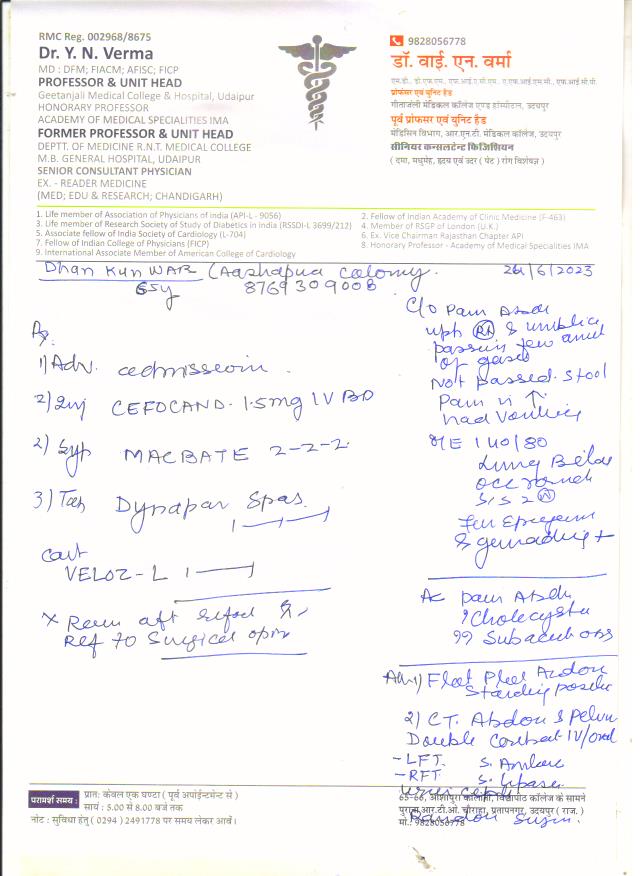 RMC Reg. 002968/8675
Dr. Y. N. Verma
MD : DFM; FIACM; AFISC; FICP
PROFESSOR & UNIT HEAD
Geetanjali Medical College & Hospital, Udaipur
HONORARY PROFESSOR
ACADEMY OF MEDICAL SPECIALITIES IMA
FORMER PROFESSOR & UNIT HEAD
DEPTT. OF MEDICINE R.N.T. MEDICAL COLLEGE
M.B. GENERAL HOSPITAL, UDAIPUR
SENIOR CONSULTANT PHYSICIAN
EX. - READER MEDICINE
(MED; EDU & RESEARCH; CHANDIGARH)
9828056778
डॉ. वाई. एन. वर्मा
एम.डी., डी.एफ.एम., एफ.आई.ए.सी.एम., ए.एफ.आई.एस.सी., एफ.आई.सी.पी.
प्रोफसर एवं युनिट हैड
गीतांजली मेडिकल कॉलेज एण्ड हॉस्पीटल, उदयपुर
पूर्व प्रोफसर एवं युनिट हैड
मेडिसिन विभाग, आर.एन.टी. मेडिकल कॉलेज, उदयपुर
सीनियर कन्सलटेन्ट फिजिशियन
( दमा, मधुमेह, हृदय एवं उदर ( पेट ) रोग विशेषज्ञ )
1. Life member of Association of Physicians of india (API-L - 9056)
3. Life member of Research Society of Study of Diabetics in india (RSSDI-L 3699/212)
5. Associate fellow of India Society of Cardiology (L-704)
7. Fellow of Indian College of Physicians (FICP)
9. International Associate Member of American College of Cardiology
2. Fellow of Indian Academy of Clinic Medicine (F-463)
4. Member of RSGP of London (U.K.)
6. Ex. Vice Chairman Rajasthan Chapter API
8. Honorary Professor - Academy of Medical Specialities IMA
Dhan Kunwar (Aashapua Colony.
65y 8769309008
26/6/2023
Rx.
1) Adv. admission.
2) Inj CEFOCAND. 1.5mg IV BD
2) Syp MACBATE 2-2-2.
3) Tab Dynapar Spas.
VELOZ-L 1
Ref to Surgical opin
c/o Pain Abd
& umblic
of gases
Not passed. Stool
Pain n ↑
had Vomiting
O/E 140/80
Pain Abd
? Cholecysti
?? Subacute obs
Adv 1) Flat Plate Abdom
Standing
2) CT. Abdom & Pelvi
Double Contrast IV/oral
- LFT. S. Amlase
- RFT. S. Lipase
Random Sugar.
परामर्श समय :
प्रातः केवल एक घण्टा ( पूर्व अपॉईन्टमेन्ट से )
सायं : 5.00 से 8.00 बजे तक
नोट : सुविधा हेतु ( 0294 ) 2491778 पर समय लेकर आवें।
65-66, आशापुरा कॉलोनी, विद्यापीठ कॉलेज के सामने
पुराना आर.टी.ओ. चौराहा, प्रतापनगर, उदयपुर ( राज. )
मो.: 9828056778